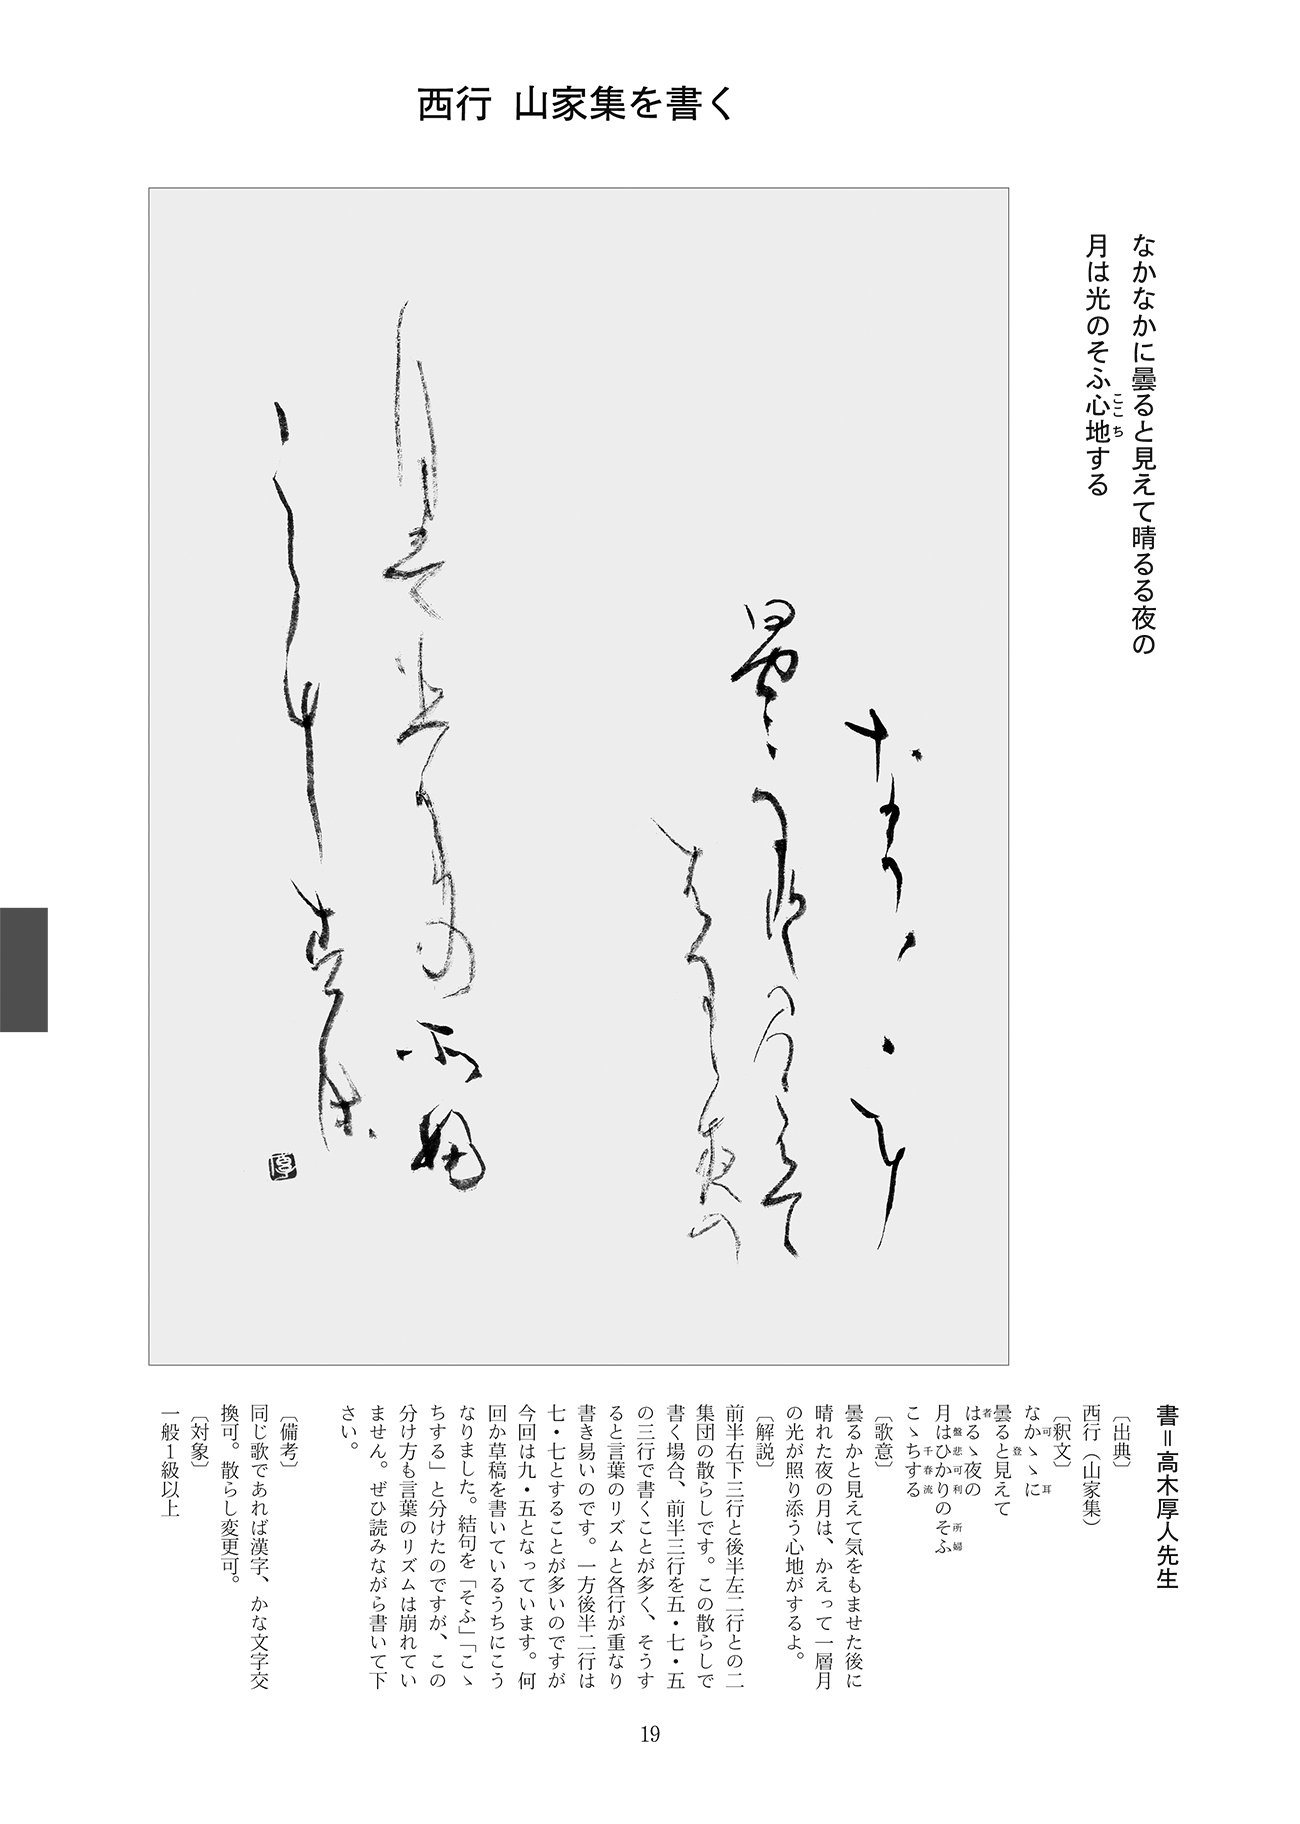 西行 山家集を書く
なかなかに曇ると見えて晴るる夜の
月は光のそふ心地する
ここち
なかゝゝに
曇ると見えて
はるゝ夜の
月はひかりのそふ
こゝちする
厚
書＝高木厚人先生
〔出典〕
西行（山家集）
〔釈文〕
なかゝゝに
可 耳
曇ると見えて
登
はるゝ夜の
者
月はひかりのそふ
盤悲可利 所婦
こゝちする
千春流
〔歌意〕
曇るかと見えて気をもませた後に
晴れた夜の月は、かえって一層月
の光が照り添う心地がするよ。
〔解説〕
前半右下三行と後半左二行との二
集団の散らしです。この散らしで
書く場合、前半三行を五・七・五
の三行で書くことが多く、そうす
ると言葉のリズムと各行が重なり
書き易いのです。一方後半二行は
七・七とすることが多いのですが
今回は九・五となっています。何
回か草稿を書いているうちにこう
なりました。結句を「そふ」「こゝ
ちする」と分けたのですが、この
分け方も言葉のリズムは崩れてい
ません。ぜひ読みながら書いて下
さい。
〔備考〕
同じ歌であれば漢字、かな文字交
換可。散らし変更可。
〔対象〕
一般１級以上
19